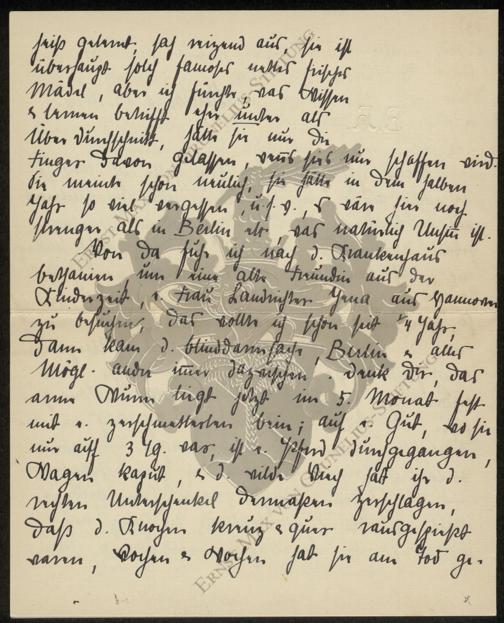 heiß gelernt, sah reizend aus, sie ist
überhaupt solch famoses nettes frisches
Mädel, aber ich fürchte, was Wissen
u lernen betrifft eher unter als
über Durchschnitt, hätte sie nur die
Finger davon gelassen, wenn sies nur schaffen wird.
Sie meinte schon neulich, sie hätte in dem halben
Jahr so viel vergessen, u.s.w., es wäre hier noch
strenger als in Berlin etc, was natürlich Unsinn ist.
Von da fuhr ich nach d. Krankenhaus
bethanien um eine alte Freundin aus der
Kinderzeit, e. Frau Landrichter Jena aus Hannover
zu besuchen, das wollte ich schon seit 1/4 Jahr,
dann kam d. blinddarmsache, Berlin u alles
Mögl. andre immer dazwischen, denk dir, das
arme Wurm liegt jetzt im 5. Monat fest
mit e. zerschmetterten bein; auf e. Gut, wo sie
nur auf 3 tg. war, ist e. Pferd durchgegangen,
Wagen kaput, u d. wilde Viech hat ihr d.
rechten Unterschenkel dermaßen zerschlagen,
daß d. Knochen kreuz u quer rausgespießt
waren, Wochen u Wochen hat sie am Tod ge-
ERNST MAX VON GRUNELIUS-STIFTUNG
ERNST MAX VON GRUNELIUS-STIFTUNG